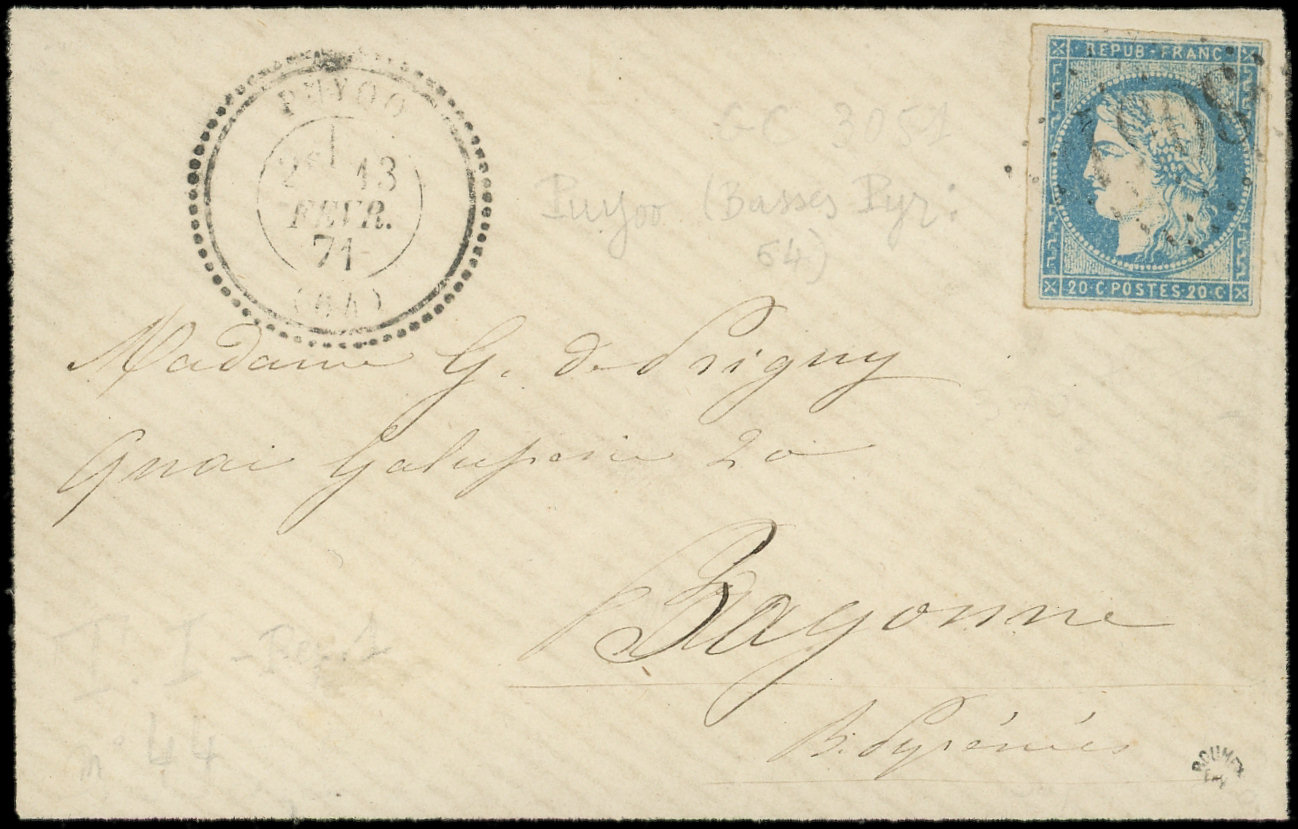 PUYOO
2E 13
FEVR.
71
(64)
GC 3051
Puyoo (Basses Pyr:
64)
REPUB·FRANC
20·C·POSTES·20·C
Madame G. de Prigny
Quai Galuperie 20
Bayonne
B: Pyrénées
T. I -
n° 44
ROUMET